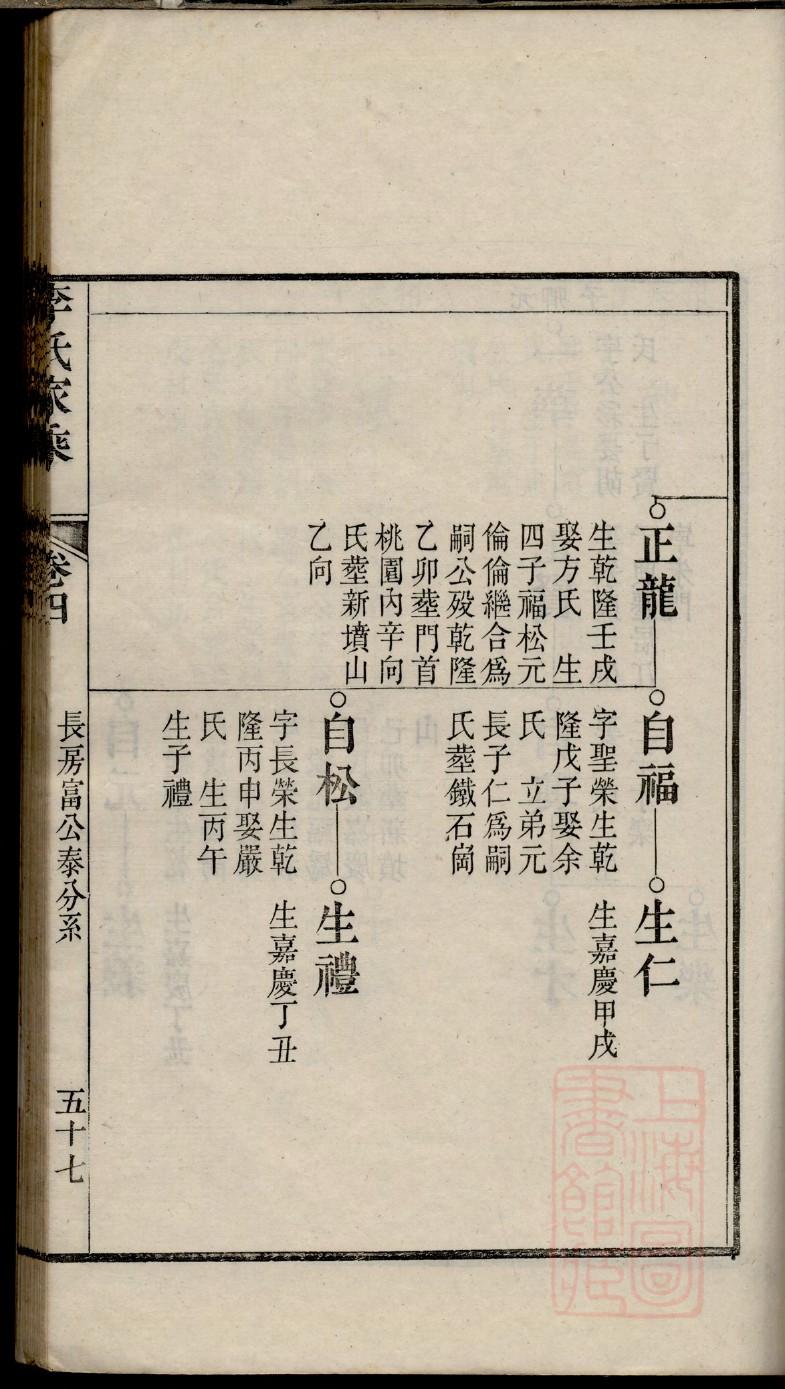 正龍
生乾隆壬戌
娶方氏　生
四子福松元
倫倫繼合爲
嗣公殁乾隆
乙卯塟門首
桃園內辛向
氏塟新墳山
乙向
自福
字聖榮生乾
隆戊子娶余
氏　立弟元
長子仁爲嗣
氏塟鐵石崗
生仁
生嘉慶甲戌
自松
字長榮生乾
隆丙申娶嚴
氏　生丙午
生子禮
生禮
生嘉慶丁丑
李氏家乘
卷四
長房富公泰分系
五十七
上海圖
書館藏